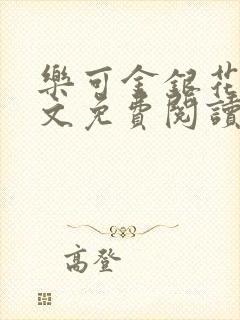 樂可金銀花
文免費閱讀
高登